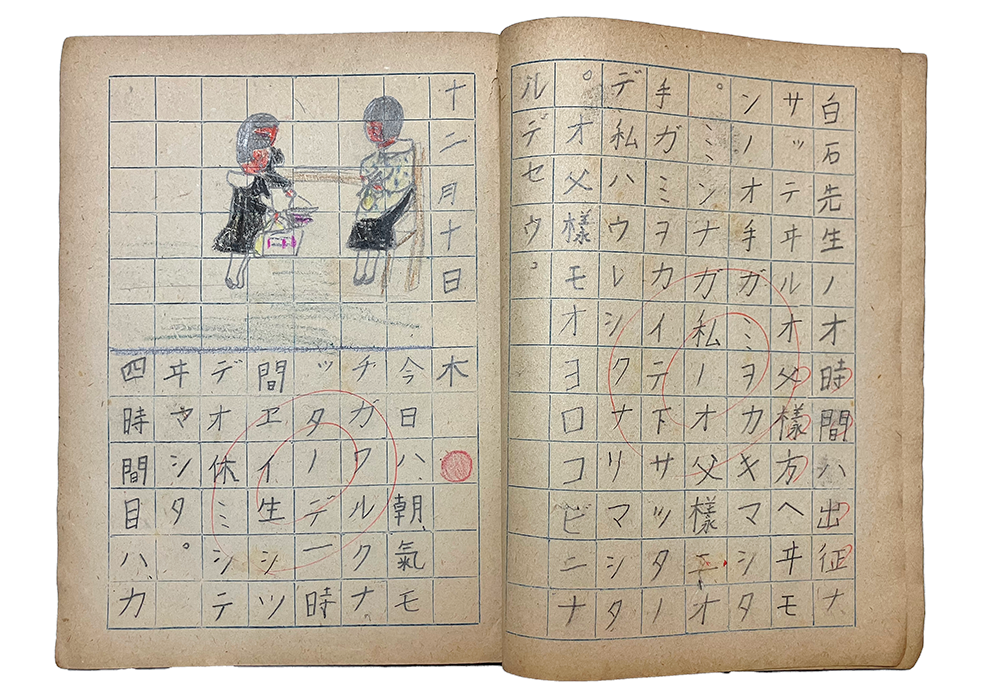 白石先生ノオ時間ハ出征ナ
サッテヰルオ父様方ヘヰモ
ンノオ手ガミヲカキマシタ
。ミンナガ私ノオ父様ニオ
手ガミヲカイテ下サッタノ
デ私ハウレシクナリマシタ
。オ父様モオヨロコビニナ
ルデセウ。
十二月十日 木
今日ハ、朝、氣モ
チガワルクナ
ッタノデ一時
間ヱイ生シツ
デオ休ミシテ
ヰマシタ。
四時間目ハ、カ